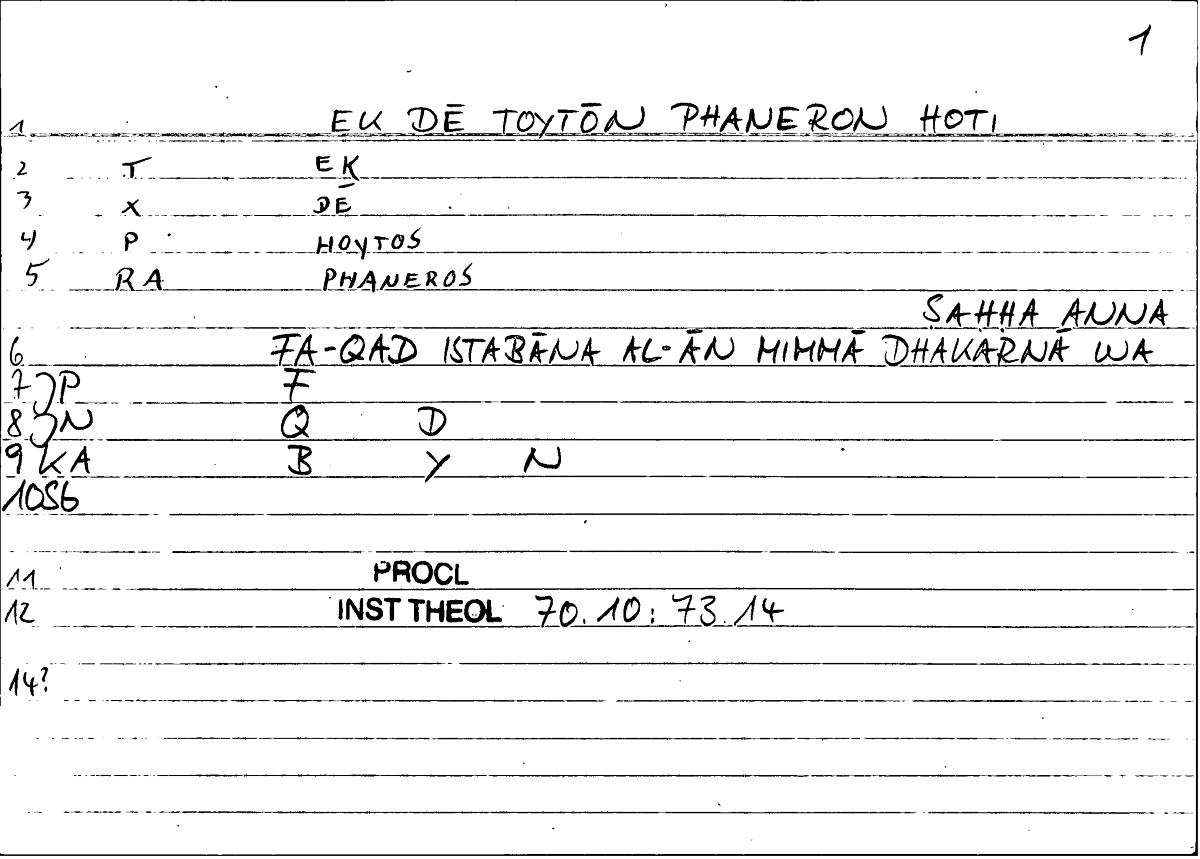 1
1 EK DĒ TOYTŌN PHANERON HOTI
2 T EK
3 X DĒ
4 P HOYTOS
5 RA PHANEROS
ṢAḤḤA ANNA
6 FA-QAD ISTABĀNA AL-ĀN MIMMĀ DHAKARNĀ WA
7 JP F
8 JN Q D
9 KA B Y N
10 S6
11 PROCL
12 INST THEOL 70.10: 73.14
14?